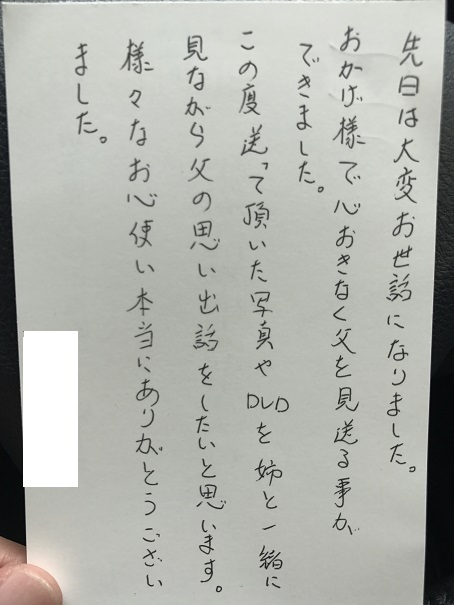 先日は大変お世話になりました。
おかげ様で心おきなく父を見送る事が
できました。
この度送って頂いた写真や DVDを姉と一緒に
見ながら父の思い出話をしたいと思います。
様々なお心使い本当にありがとうござい
ました。